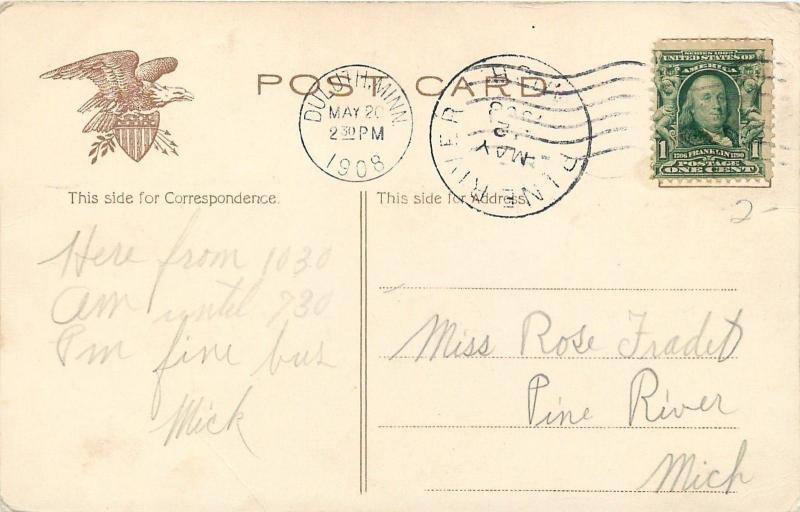 POST CARD
DULUTH, MINN.
MAY 20
2 30 PM
1908
PINE RIVER
MAY
1908
SERIES 1902
UNITED STATES OF
AMERICA
1 1
1706 FRANKLIN 1790
POSTAGE
ONE CENT
2-
This side for Correspondence.
This side for Address.
Here from 1030
am until 730
Pm fine
Mick
Miss Rose
Pine River
Mich